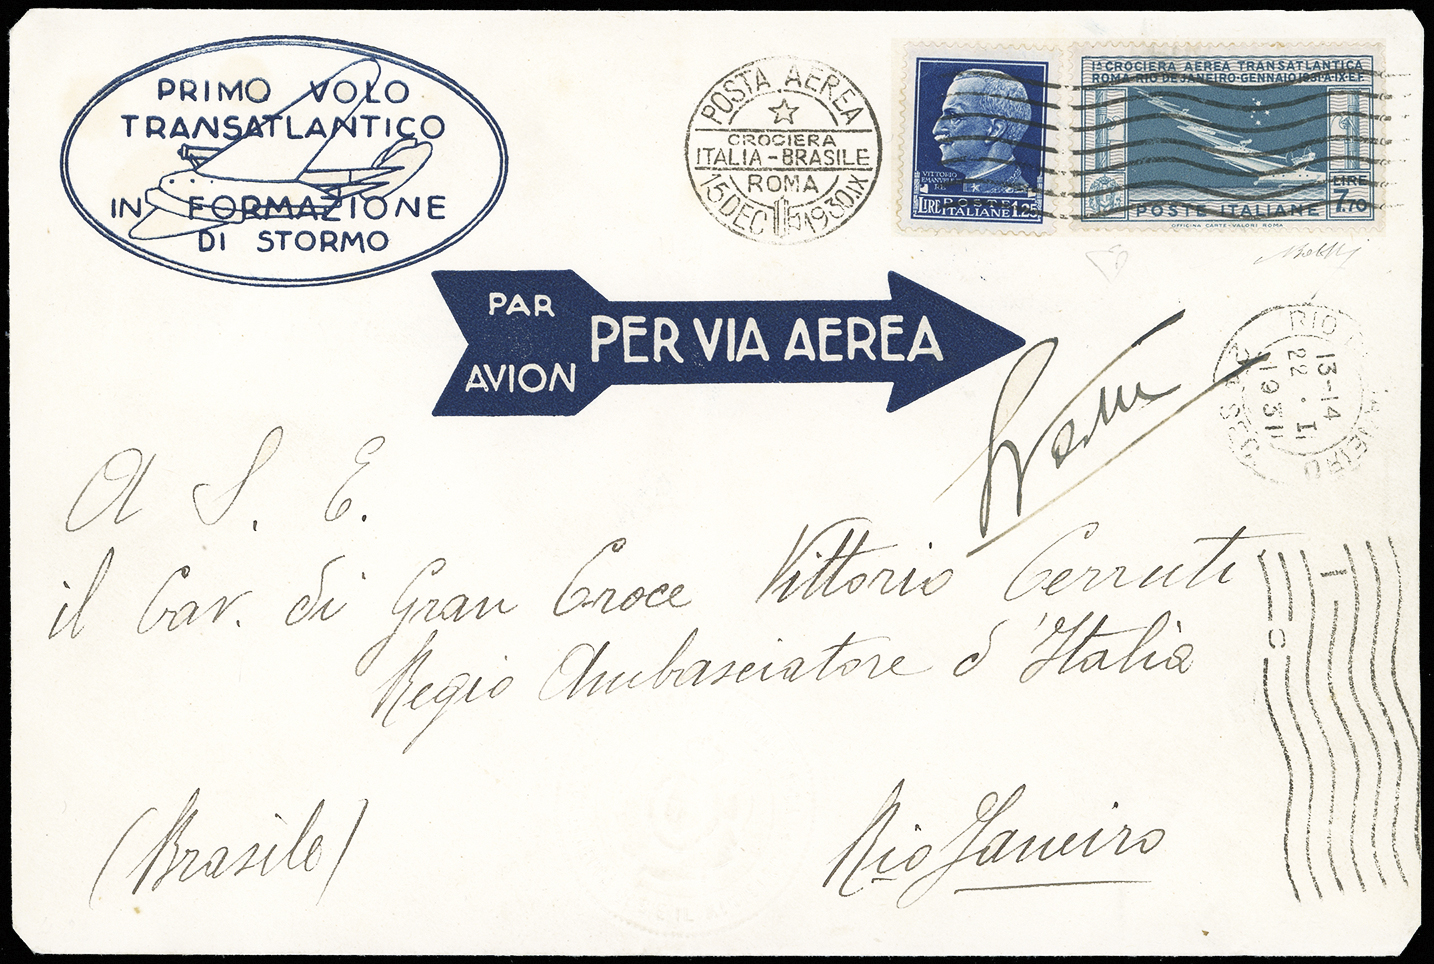 PRIMO VOLO
TRANSATLANTICO
IN FORMAZIONE
DI STORMO
POSTA AEREA
CROCIERA
ITALIA-BRASILE
ROMA
15 DEC 1930 IX
VITTORIO
EMANUELE
RE
POSTE
LIRE ITALIANE 1.25
1ª CROCIERA AEREA TRANSATLANTICA
ROMA-RIO DE JANEIRO-GENNAIO 1931-A·IX·E·F·
LIRE
7,70
POSTE ITALIANE
OFFICINA CARTE-VALORI ROMA
PAR
AVION
PER VIA AEREA
RIO
13-14
22 · I
1931
A S. E.
il Cav. di Gran Croce Vittorio Cerruti
Regio Ambasciatore d'Italia
(Brasile)
Rio Janeiro